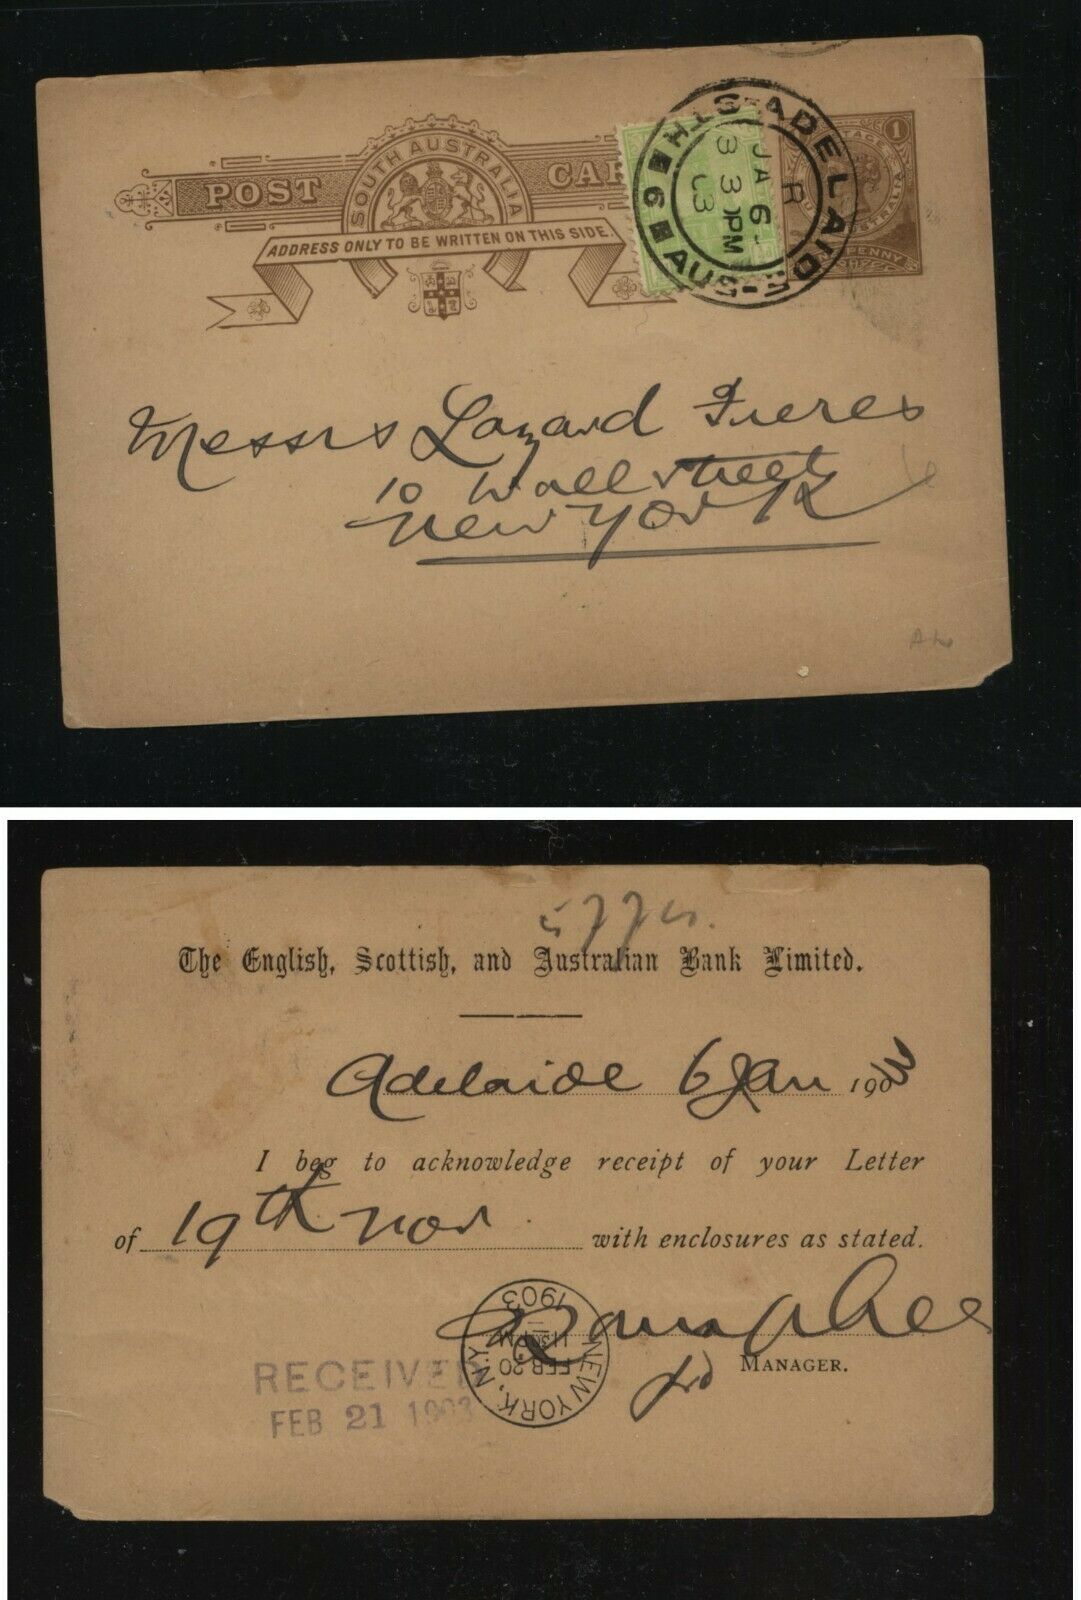 POST CAR
SOUTH AUSTRALIA
ADDRESS ONLY TO BE WRITTEN ON THIS SIDE.
ADELAIDE
STH AUS
R
JA 6
3 30PM
03
9
1
Messrs Lazard Freres
10 Wall street
New York
The English, Scottish, and Australian Bank Limited.
Adelaide 6 Jan 1903
I beg to acknowledge receipt of your Letter
of 19th Nov with enclosures as stated.
MANAGER.
NEW YORK, N.Y.
FEB 20
11 30 PM
1903
RECEIVED
FEB 21 1903